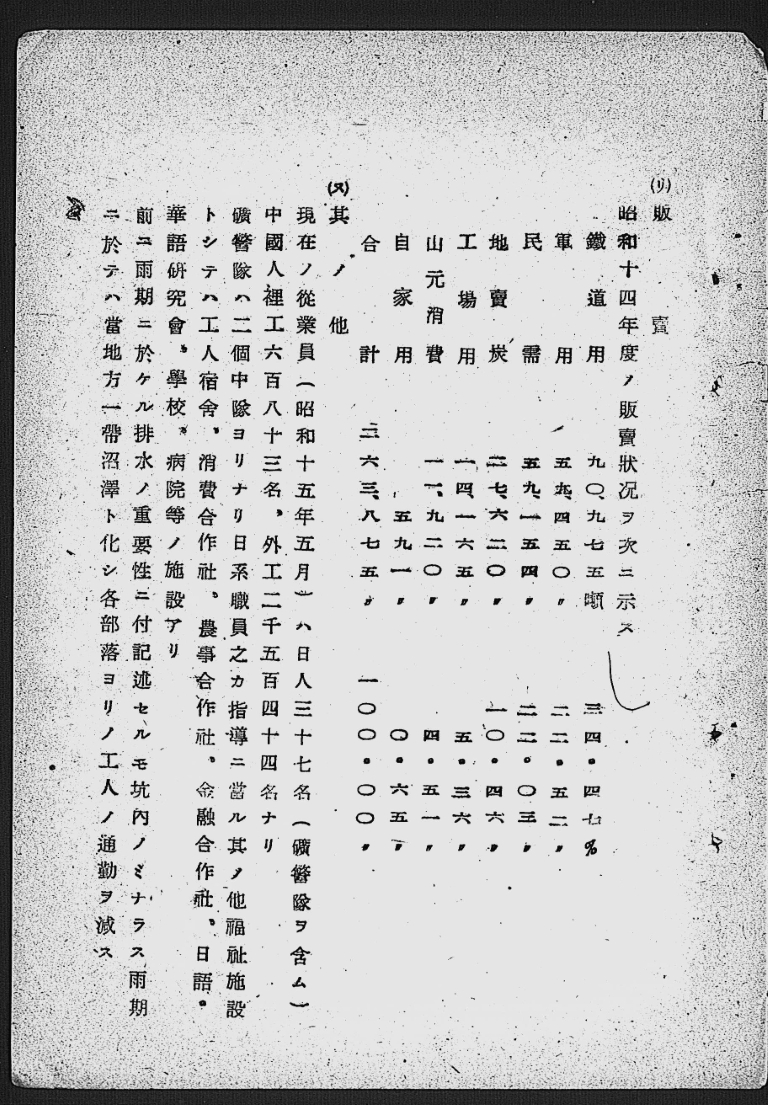 (リ)販賣
昭和十四年度ノ販賣狀況ヲ次ニ示ス
鐵道用 九〇、九七五噸 三四・四七%
軍用 五九、四五〇〃 二二・五二〃
民需 五九、一五四〃 二二・〇三〃
地賣炭 二七、六二〇〃 一〇・四六〃
工場用 一四、一六五〃 五・三六〃
山元消費 一一、九二〇〃 四・五一〃
自家用 五九一〃 〇・六五〃
合計 二六三、八七五〃 一〇〇・〇〇〃
(ヌ)其ノ他
現在ノ從業員(昭和十五年五月)ハ日人三十七名(礦警隊ヲ含ム)
中國人裡工六百八十三名、外工二千五百四十四名ナリ
礦警隊ハ二個中隊ヨリナリ日系職員之カ指導ニ當ル其ノ他福祉施設
トシテハ工人宿舍、消費合作社、農事合作社、金融合作社、日語・
華語研究會、學校、病院等ノ施設アリ
前ニ雨期ニ於ケル排水ノ重要性ニ付記述セルモ坑內ノミナラス雨期
ニ於テハ當地方一帶沼澤ト化シ各部落ヨリノ工人ノ通勤ヲ減ス